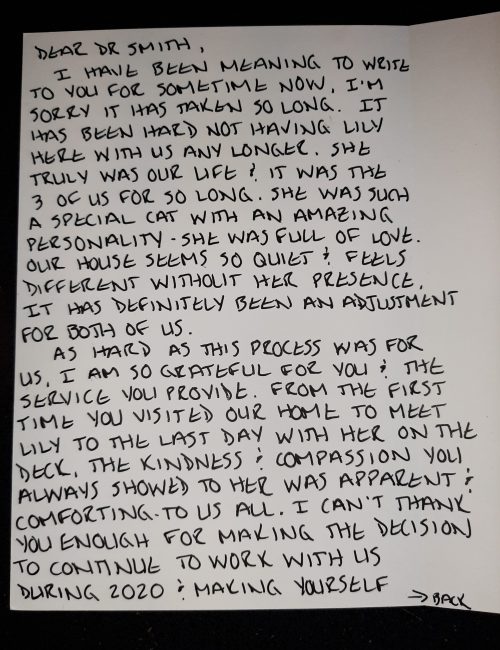 DEAR DR SMITH,
I HAVE BEEN MEANING TO WRITE
TO YOU FOR SOMETIME NOW. I'M
SORRY IT HAS TAKEN SO LONG. IT
HAS BEEN HARD NOT HAVING LILY
HERE WITH US ANY LONGER. SHE
TRULY WAS OUR LIFE & IT WAS THE
3 OF US FOR SO LONG. SHE WAS SUCH
A SPECIAL CAT WITH AN AMAZING
PERSONALITY - SHE WAS FULL OF LOVE.
OUR HOUSE SEEMS SO QUIET & FEELS
DIFFERENT WITHOUT HER PRESENCE.
IT HAS DEFINITELY BEEN AN ADJUSTMENT
FOR BOTH OF US.
AS HARD AS THIS PROCESS WAS FOR
US, I AM SO GRATEFUL FOR YOU & THE
SERVICE YOU PROVIDE. FROM THE FIRST
TIME YOU VISITED OUR HOME TO MEET
LILY TO THE LAST DAY WITH HER ON THE
DECK, THE KINDNESS & COMPASSION YOU
ALWAYS SHOWED TO HER WAS APPARENT &
COMFORTING - TO US ALL. I CAN'T THANK
YOU ENOUGH FOR MAKING THE DECISION
TO CONTINUE TO WORK WITH US
DURING 2020 & MAKING YOURSELF
→ BACK